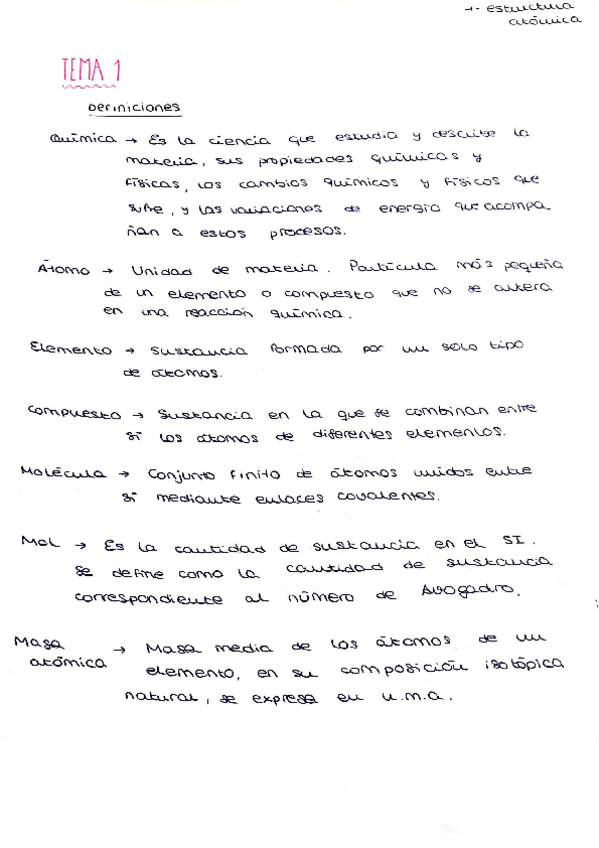 1- estructura
atómica
TEMA 1
Definiciones
Química → Es la ciencia que estudia y describe la
materia, sus propiedades químicas y
físicas, los cambios químicos y físicos que
sufre, y las variaciones de energía que acompa-
ñan a estos procesos.
Átomo → Unidad de materia. Partícula más pequeña
de un elemento o compuesto que no se altera
en una reacción química.
Elemento → Sustancia formada por un solo tipo
de átomos.
Compuesto → Sustancia en la que se combinan entre
sí los átomos de diferentes elementos.
Molécula → Conjunto finito de átomos unidos entre
sí mediante enlaces covalentes.
Mol → Es la cantidad de sustancia en el SI.
Se define como la cantidad de sustancia
correspondiente al número de Avogadro.
Masa → Masa media de los átomos de un
atómica elemento, en su composición isotópica
natural, se expresa en u.m.a.